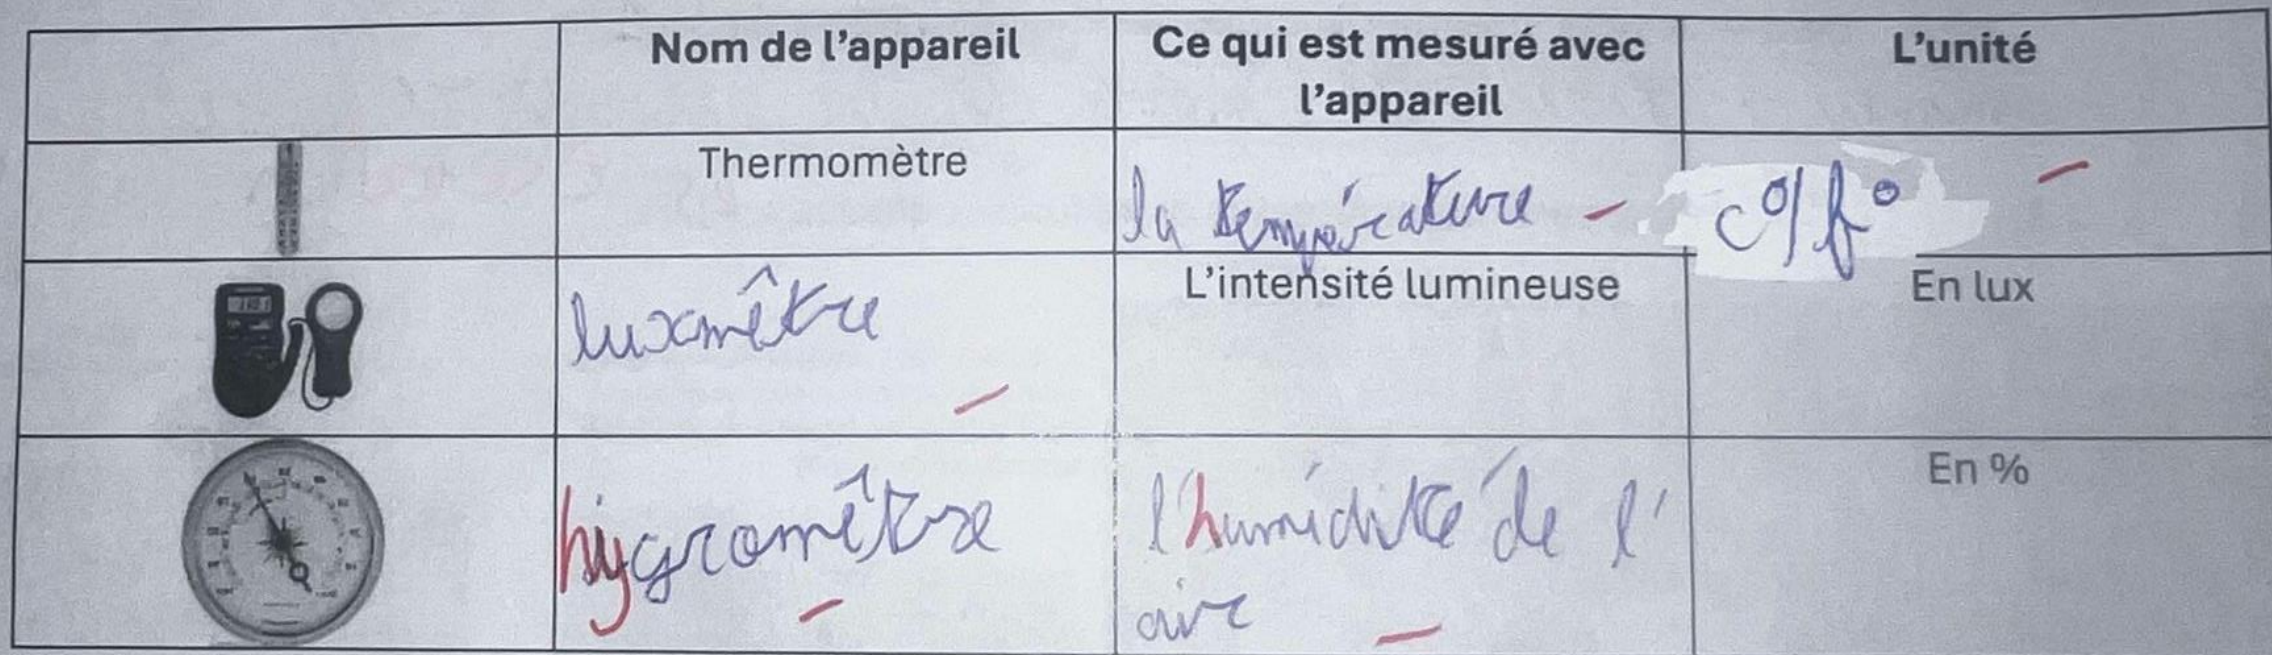 Nom de l'appareil
Ce qui est mesuré avec
l'appareil
L'unité
Thermomètre
la température
c°/f°
luxmêtre
L'intensité lumineuse
En lux
hygromêtre
l'humidité de l'
air
En %